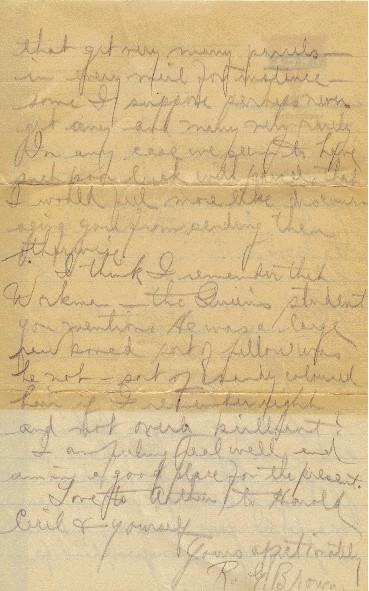 that get very many parcels —
in every mail for instance —
some I suppose perhaps never
get any and many very rarely
In any case we seem to have
such poor luck with that
I would feel more like discour-
aging you from sending them
otherwise.
I think I remember that
Workman — the Queen's student
you mention. He was a large
raw boned sort of fellow was
he not — sort of sandy coloured
hair if I remember right
and not overly brilliant!
I am feeling real well and
am in a good place for the present.
Love to Arthur, to Harold
Cecil & yourself
Yours affectionately
R. G. Brown